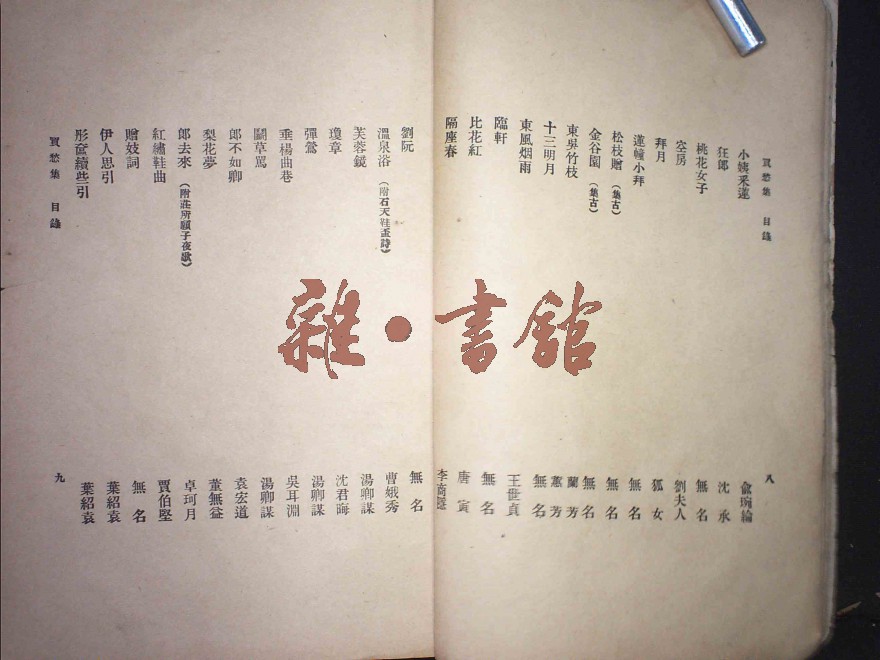 買愁集 目錄
八
小姨采蓮 俞琬綸
狂郎 沈承
桃花女子 無名
空房 劉夫人
拜月 狐女
蓮幢小拜 無名
松枝贈(集古) 無名
金谷園(集古) 無名
東吳竹枝 蘭芳 蕙芳
十三明月 無名
東風烟雨 王世貞
臨軒 無名
比花紅 唐寅
隔座春 李商隱
劉阮 無名
溫泉浴(附石天鞋盃詩) 曹娥秀
芙蓉鏡 湯卿謀
瓊章 沈君晦
彈鶯 湯卿謀
垂楊曲巷 吳耳淵
鬭草罵 湯卿謀
郎不如卿 袁宏道
梨花夢 董無益
郎去來(附莊所願子夜歌) 卓珂月
紅繡鞋曲 賈伯堅
贈妓詞 無名
伊人思引 葉紹袁
形奩續些引 葉紹袁
買愁集 目錄
九
雜·書館